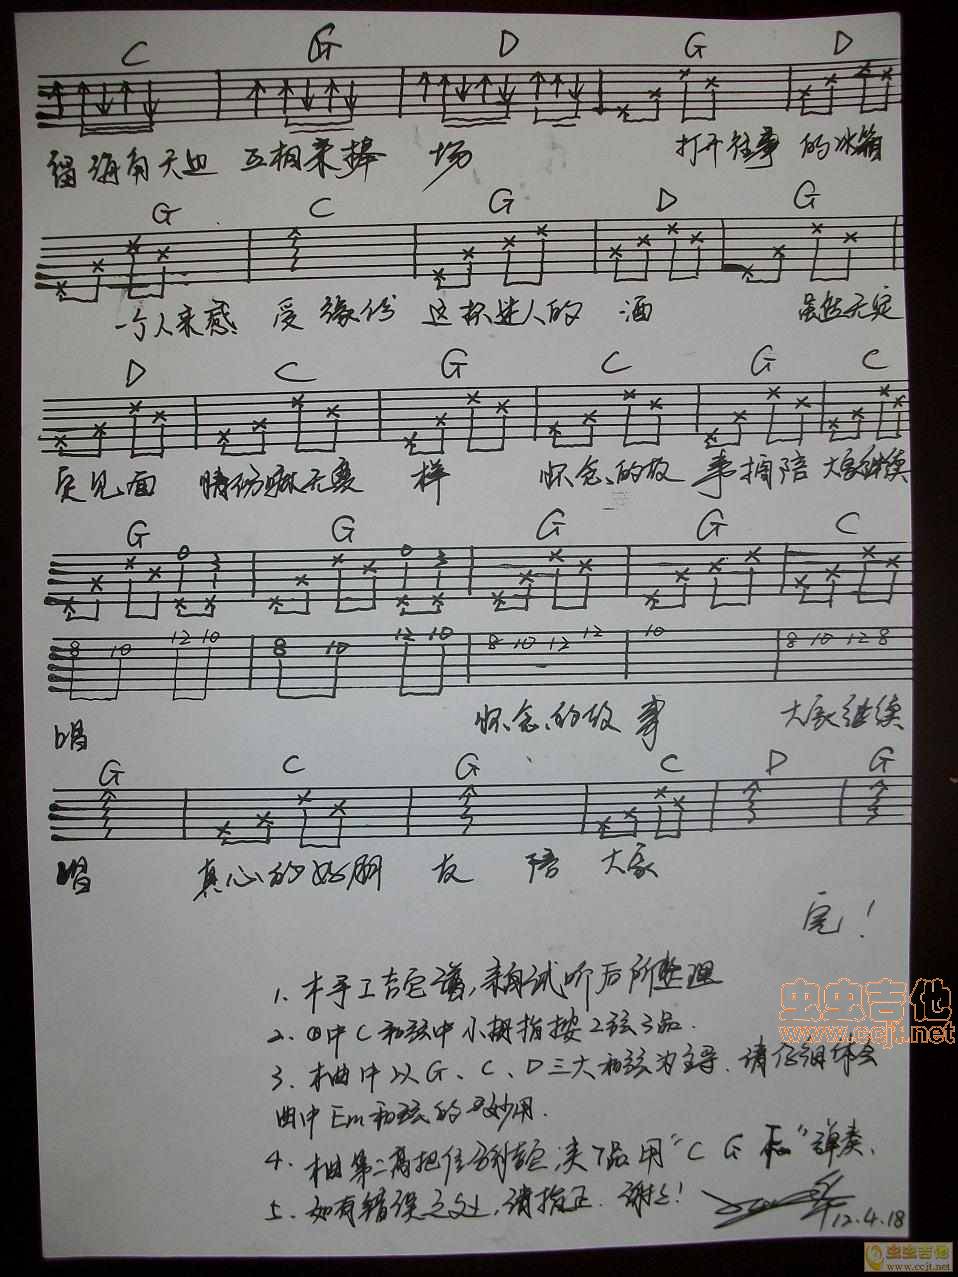 C G D G D
海角天边 互相来捧 场 打开往事 的冰箱
G C G D G
一个人来感 受 缘份 这杯迷人的 酒 虽然无定
D C G C G C
见面 情份 无 样 怀念的故 事 陪 大家继续
G G G G C
0 3 0 3
8 10 12 10 8 10 12 10 8 10 12 12 10 8 10 12 8
唱 怀念的故 事 大家继续
G C G C D G
唱 真心的好朋 友 陪 大家
完!
1. 本手工吉它谱,亲自试听后所整理
2. ①中C和弦中小拇指按2弦3品.
3. 本曲中以G、C、D三大和弦为主导.请仔细体会
曲中Em和弦的妙用.
4. 本曲第二高把位 夹7品用“C G ”弹奏.
5. 如有错误之处,请指正.谢谢!
12.4.18
虫虫吉他
www.ccjt.net
虫虫吉他
www.ccjt.net